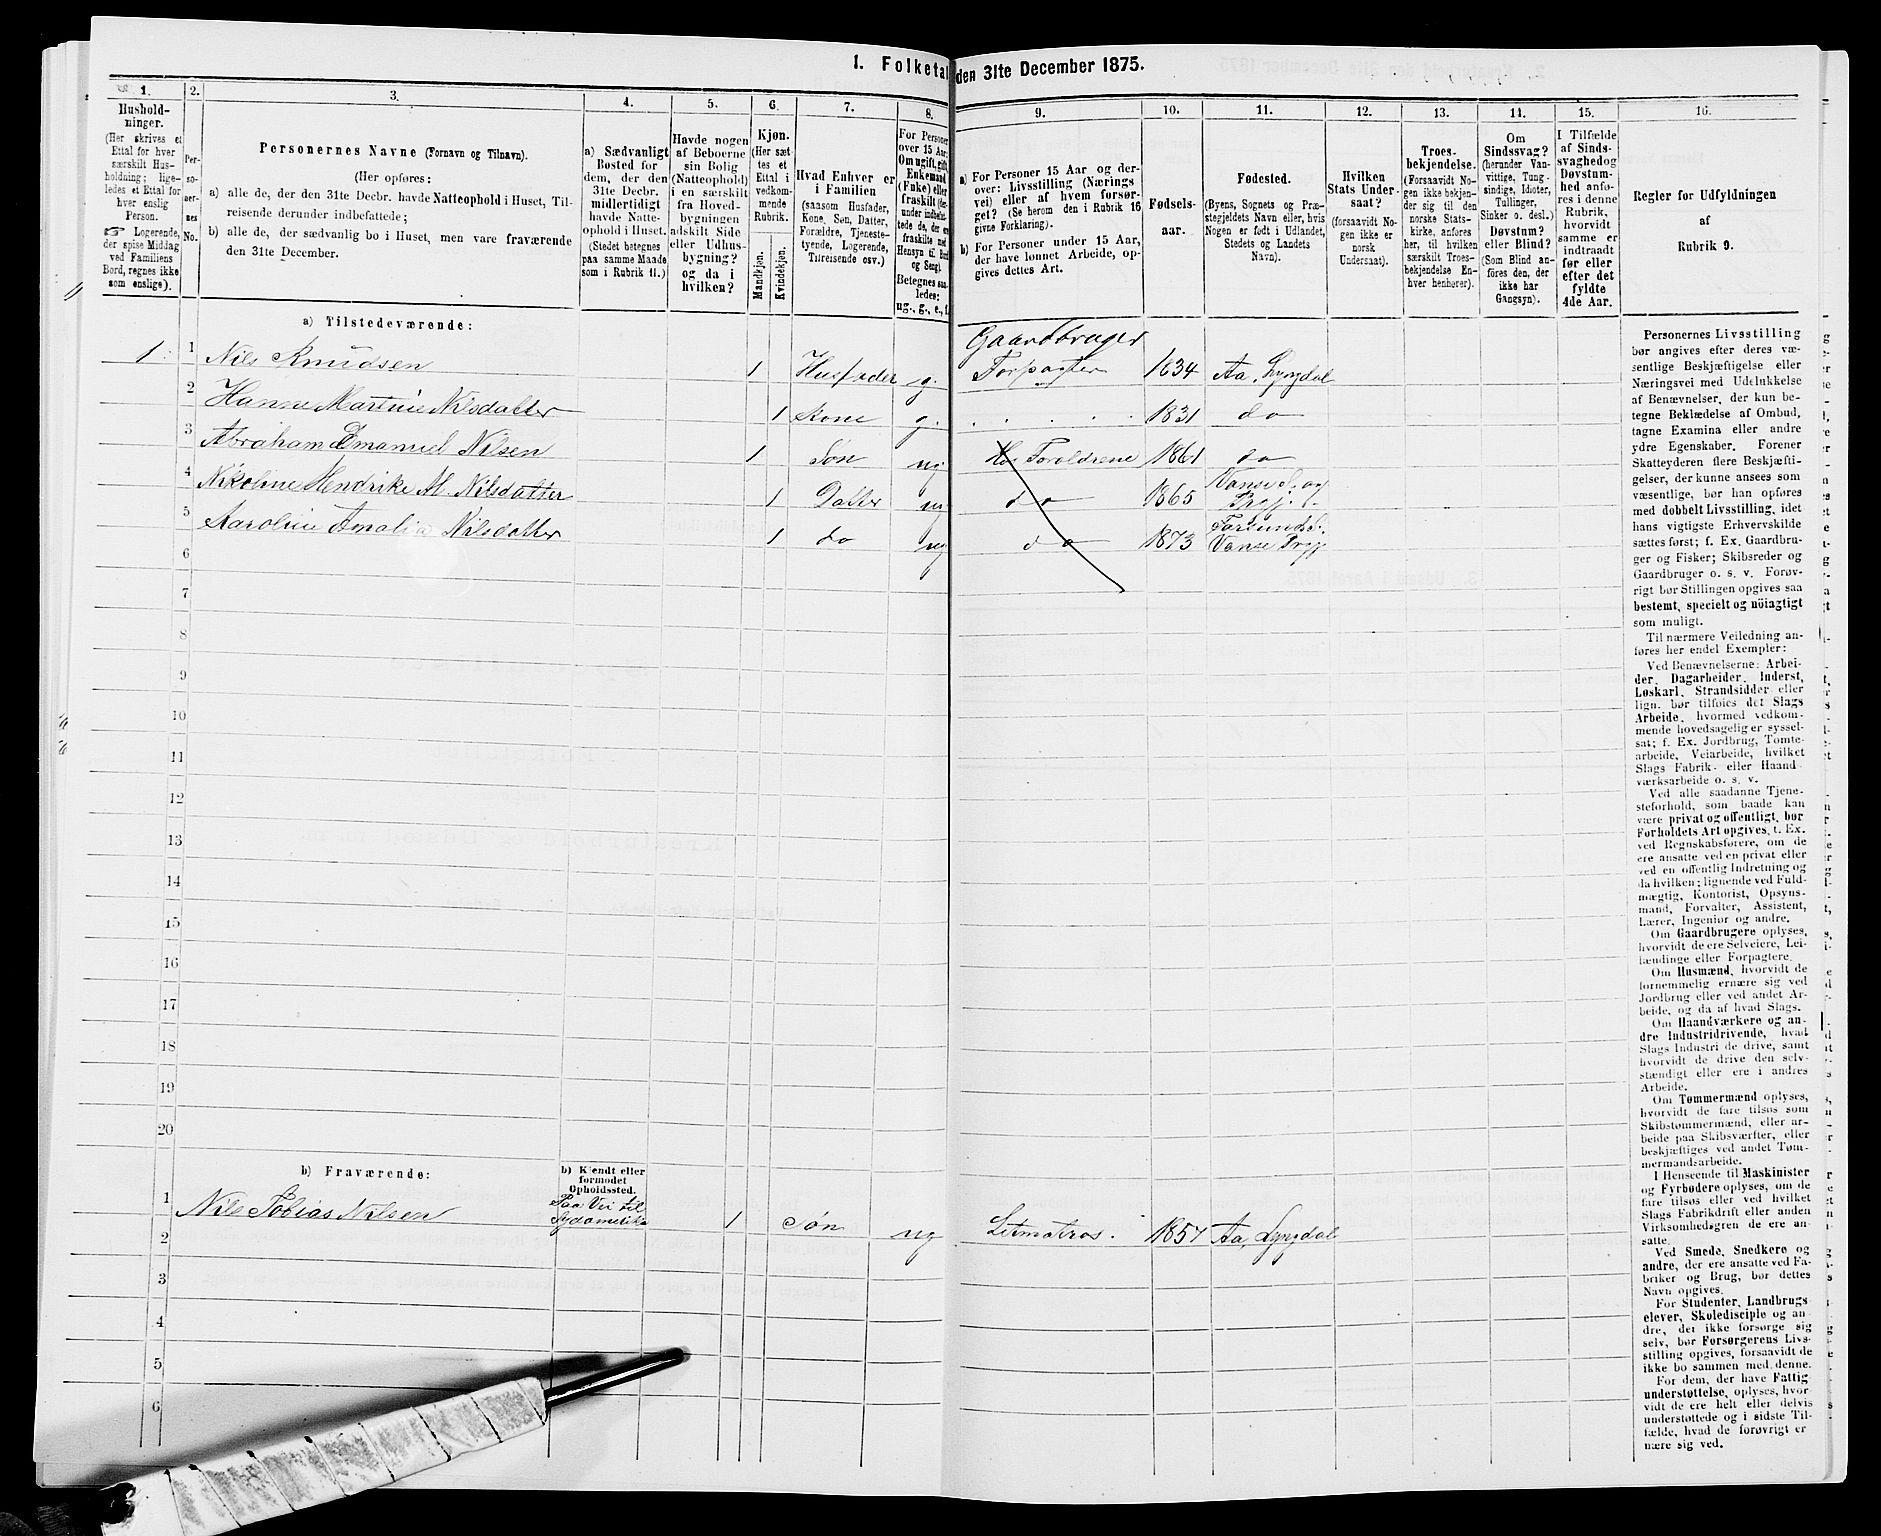 1. Folketal den 31te December 1875.
1.
Hushold-
ninger.
(Her skrives et
Ettal for hver
særskilt Hus-
holdning; lige-
ledes et Ettal for
hver enslig
Person.
☞ Logerende,
der spise Middag
ved Familiens
Bord, regnes ikke
som enslige).
2.
Per-
so-
ner-
nes
No.
3.
Personernes Navne (Fornavn og Tilnavn).
(Her opføres:
a) alle de, der den 31te Decbr. havde Natteophold i Huset, Til-
reisende derunder indbefattede;
b) alle de, der sædvanlig bo i Huset, men vare fraværende
den 31te December.
4.
a) Sædvanligt
Bosted for
dem, der den
31te Decbr.
midlertidigt
havde Natte-
ophold i Huset.
(Stedet betegnes
paa samme Maade
som i Rubrik 11.)
5.
Havde nogen
af Beboerne
sin Bolig
(Natteophold)
i en særskilt
fra Hoved-
bygningen
adskilt Side
eller Udhus-
bygning?
og da i
hvilken?
6.
Kjøn.
(Her sæt-
tes et
Ettal i
vedkom-
mende
Rubrik.
Mandkjøn.
Kvindekjøn.
7.
Hvad Enhver er
i Familien
(saasom Husfader,
Kone, Søn, Datter,
Forældre, Tjeneste-
tyende, Logerende,
Tilreisende osv.)
8.
For Personer
over 15 Aar:
Om ugift, gift,
Enkemand
(Enke) eller
fraskilt
Betegnes saa-
ledes:
ug., g., e., f.
9.
a) For Personer 15 Aar og der-
over: Livsstilling (Nærings
vei) eller af hvem forsør-
get? (Se herom den i Rubrik 16
givne Forklaring).
b) For Personer under 15 Aar,
der have lønnet Arbeide, op-
gives dettes Art.
10.
Fødsels-
aar.
11.
Fødested.
(Byens, Sognets og Præ-
stegjeldets Navn eller, hvis
Nogen er født i Udlandet,
Stedets og Landets
Navn).
12.
Hvilken
Stats Under-
saat?
(forsaavidt No-
gen ikke er
norsk
Undersaat).
13.
Troes-
bekjendelse.
(Forsaavidt No-
gen ikke bekjen-
der sig til den
norske Stats-
kirke, anføres
her, til hvilken
særskilt Troes-
bekjendelse En-
hver henhører).
14.
Om
Sindssvag?
(herunder Van-
vittige, Tung-
sindige, Idioter,
Tullinger,
Sinker o. desl.)
Døvstum?
eller Blind?
(Som Blind an-
føres den, der
ikke har
Gangsyn).
15.
I Tilfælde
af Sinds-
svaghed og
Døvstum-
hed anfø-
res i denne
Rubrik,
hvorvidt
samme er
indtraadt
før eller
efter det
fyldte
4de Aar.
16.
Regler for Udfyldningen
af
Rubrik 9.
a) Tilstedeværende:
1 1 Nils Knudsen 1 Husfader g. Gaardbruger
Forpagter 1834 Aa, Lyngdal
2 Hanne Martine Nilsdatter 1 Kone g. . . . . . 1831 do
3 Abraham Emanuel Nilsen 1 Søn ug Hos Foreldrene 1861 do
4 Nikoline Hendrike M. Nilsdatter 1 Datter ug do 1865 Vanse S. og
Prgj.
5 Karoline Amalia Nilsdatter 1 do ug do 1873 Farsund S.
Vanse Prgj
6
7
8
9
10
11
12
13
14
15
16
17
18
19
20
b) Fraværende:
b) Kjendt eller
formodet
Opholdssted.
1 Nils Tobias Nilsen Paa Vei til
Sydamerika 1 Søn ug Letmatros. 1857 Aa, Lyngdal
2
3
4
5
6
Personernes Livsstilling
bør angives efter deres væ-
sentlige Beskjæftigelse eller
Næringsvei med Udelukkelse
af Benævnelser, der kun be-
tegne Beklædelse af Ombud,
tagne Examina eller andre
ydre Egenskaber. Forener
Skatteyderen flere Beskjæfti-
gelser, der kunne ansees som
væsentlige, bør han opføres
med dobbelt Livsstilling, idet
hans vigtigste Erhvervskilde
sættes først; f. Ex. Gaardbru-
ger og Fisker; Skibsreder og
Gaardbruger o. s. v. Forøv-
rigt bør Stillingen opgives saa
bestemt, specielt og nöiagtigt
som muligt.
Til nærmere Veiledning an-
føres her endel Exempler:
Ved Benævnelserne: Arbei-
der, Dagarbeider, Inderst,
Løskarl, Strandsidder eller
lign. bør tilføies det Slags
Arbeide, hvormed vedkom-
mende hovedsagelig er syssel-
sat; f. Ex. Jordbrug, Tomte-
arbeide, Veiarbeide, hvilket
Slags Fabrik- eller Haand-
værksarbeide o. s. v.
Ved alle saadanne Tjene-
steforhold, som baade kan
være privat og offentligt, bør
Forholdets Art opgives, t. Ex.
ved Regnskabsførere, om de
ere ansatte ved en privat eller
ved en offentlig Indretning og
da hvilken; lignende ved Fuld-
mægtig, Kontorist, Opsyns-
mand, Forvalter, Assistent,
Lærer, Ingeniør og andre.
Om Gaardbrugere oplyses,
hvorvidt de ere Selveiere, Lei-
lændinge eller Forpagtere.
Om Husmænd, hvorvidt de
fornemmelig ernære sig ved
Jordbrug eller ved andet Ar-
beide, og da af hvad Slags.
Om Haandværkere og an-
dre Industridrivende, hvad
Slags Industri de drive, samt
hvorvidt de drive den selv-
stændigt eller ere i andres
Arbeide.
Om Tømmermænd oplyses,
hvorvidt de fare tilsøs som
Skibstømmermænd, eller ar-
beide paa Skibsværfter, eller
beskjæftiges ved andet Tøm-
mermandsarbeide.
I Henseende til Maskinister
og Fyrbødere oplyses, om de
fare tilsøs eller ved hvilket
Slags Fabrikdrift eller anden
Virksomhedsgren de ere an-
satte.
Ved Smede, Snedkere og
andre, der ere ansatte ved Fa-
briker og Brug, bør dettes
Navn opgives.
For Studenter, Landbrugs
elever, Skoledisciple og an-
dre, det ikke forsørge sig
selv, bør Forsørgerens Livs-
stilling opgives, forsaavidt de
ikke bo sammen med denne.
For dem, der have Fattig
understøttelse, oplyses, hvor-
vidt de ere helt eller delvis
understøttede og i sidste Til-
fælde, hvad de forøvrigt er
nære sig ved.